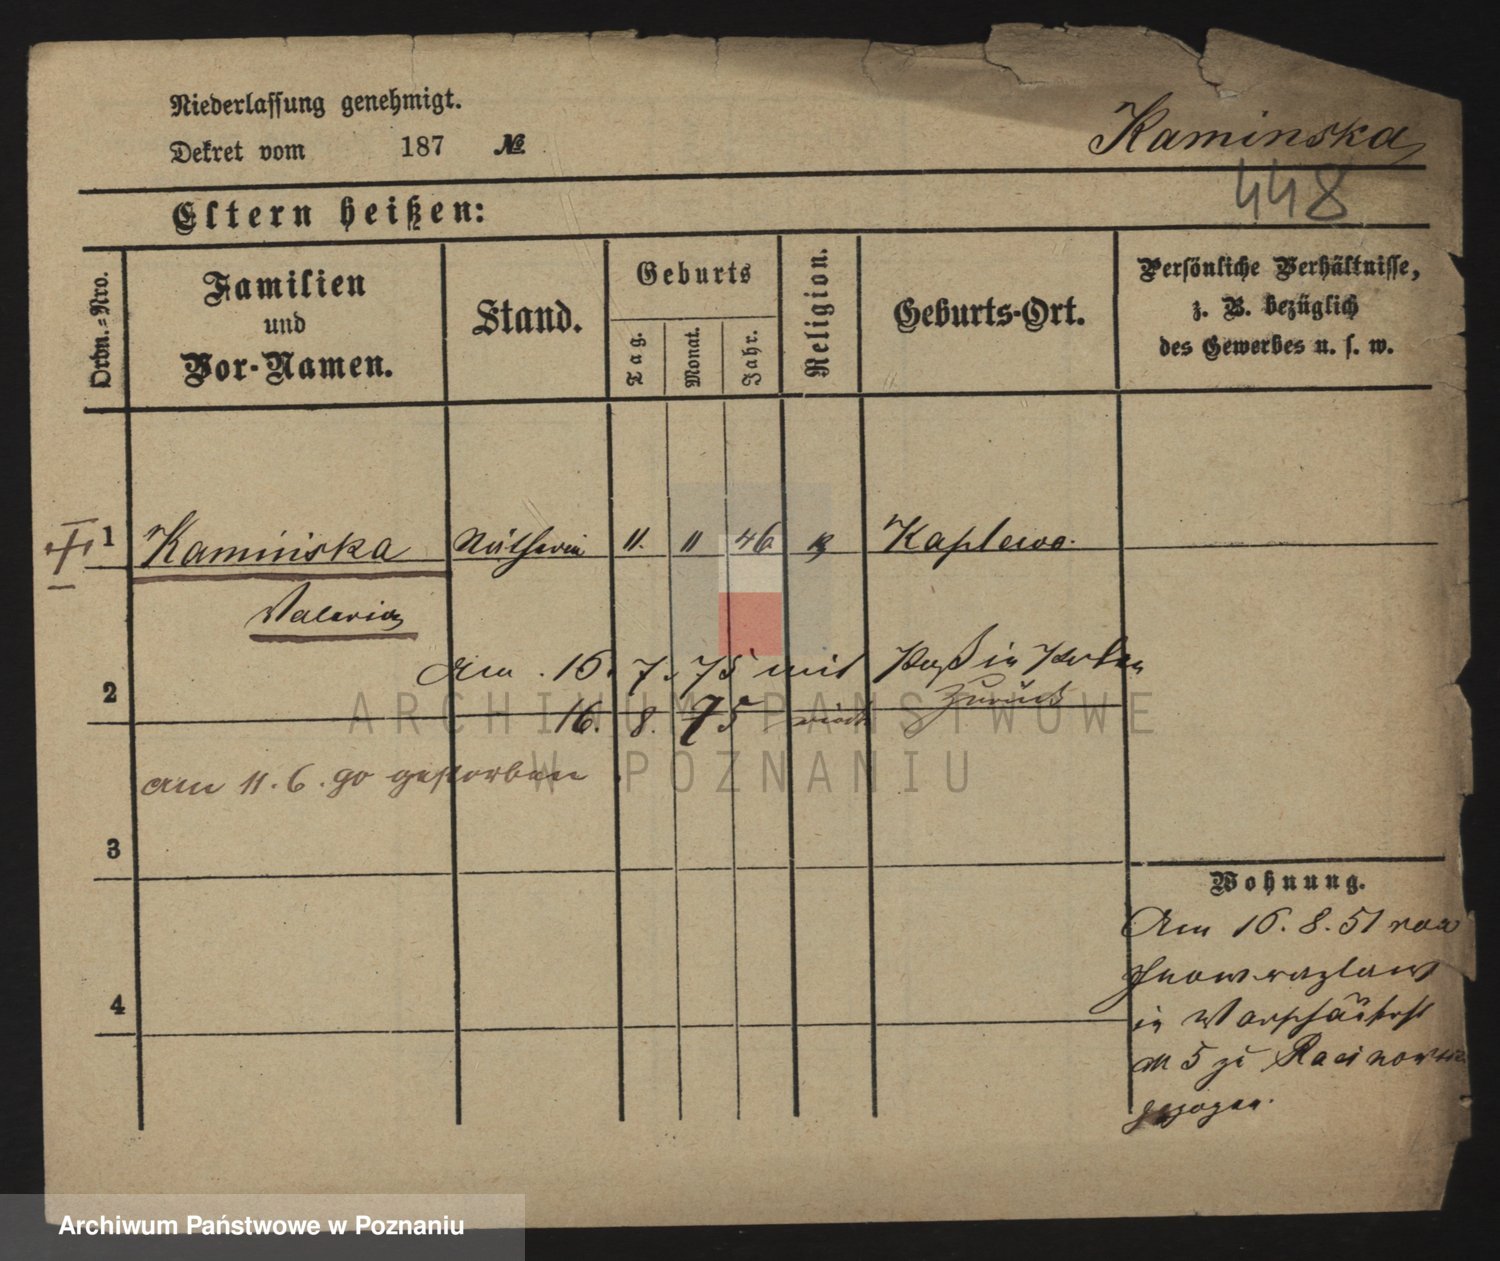 Niederlassung genehmigt.
Dekret vom 187 №
Kaminska
448
Eltern heißen:
Ordn.=Nro.
Familien
und
Vor-Namen.
Stand.
Geburts
Tag.
Monat.
Jahr.
Religion.
Geburts-Ort.
Persönliche Verhältnisse,
z. B. bezüglich
des Gewerbes u. s. w.
1 Kamińska Nätherin 11. 11 46 Kaplewo.
Valeria
Am 16. 7. 75 mit Paß in Polen
2
16. 8. 75 zurück
am 11. 6. 90 gestorben
3
Wohnung.
Am 16. 8. 51 von
Inowrazlaw
4
in
№ 5 zu
gezogen.
ARCHIWUM PAŃSTWOWE
W POZNANIU
Archiwum Państwowe w Poznaniu